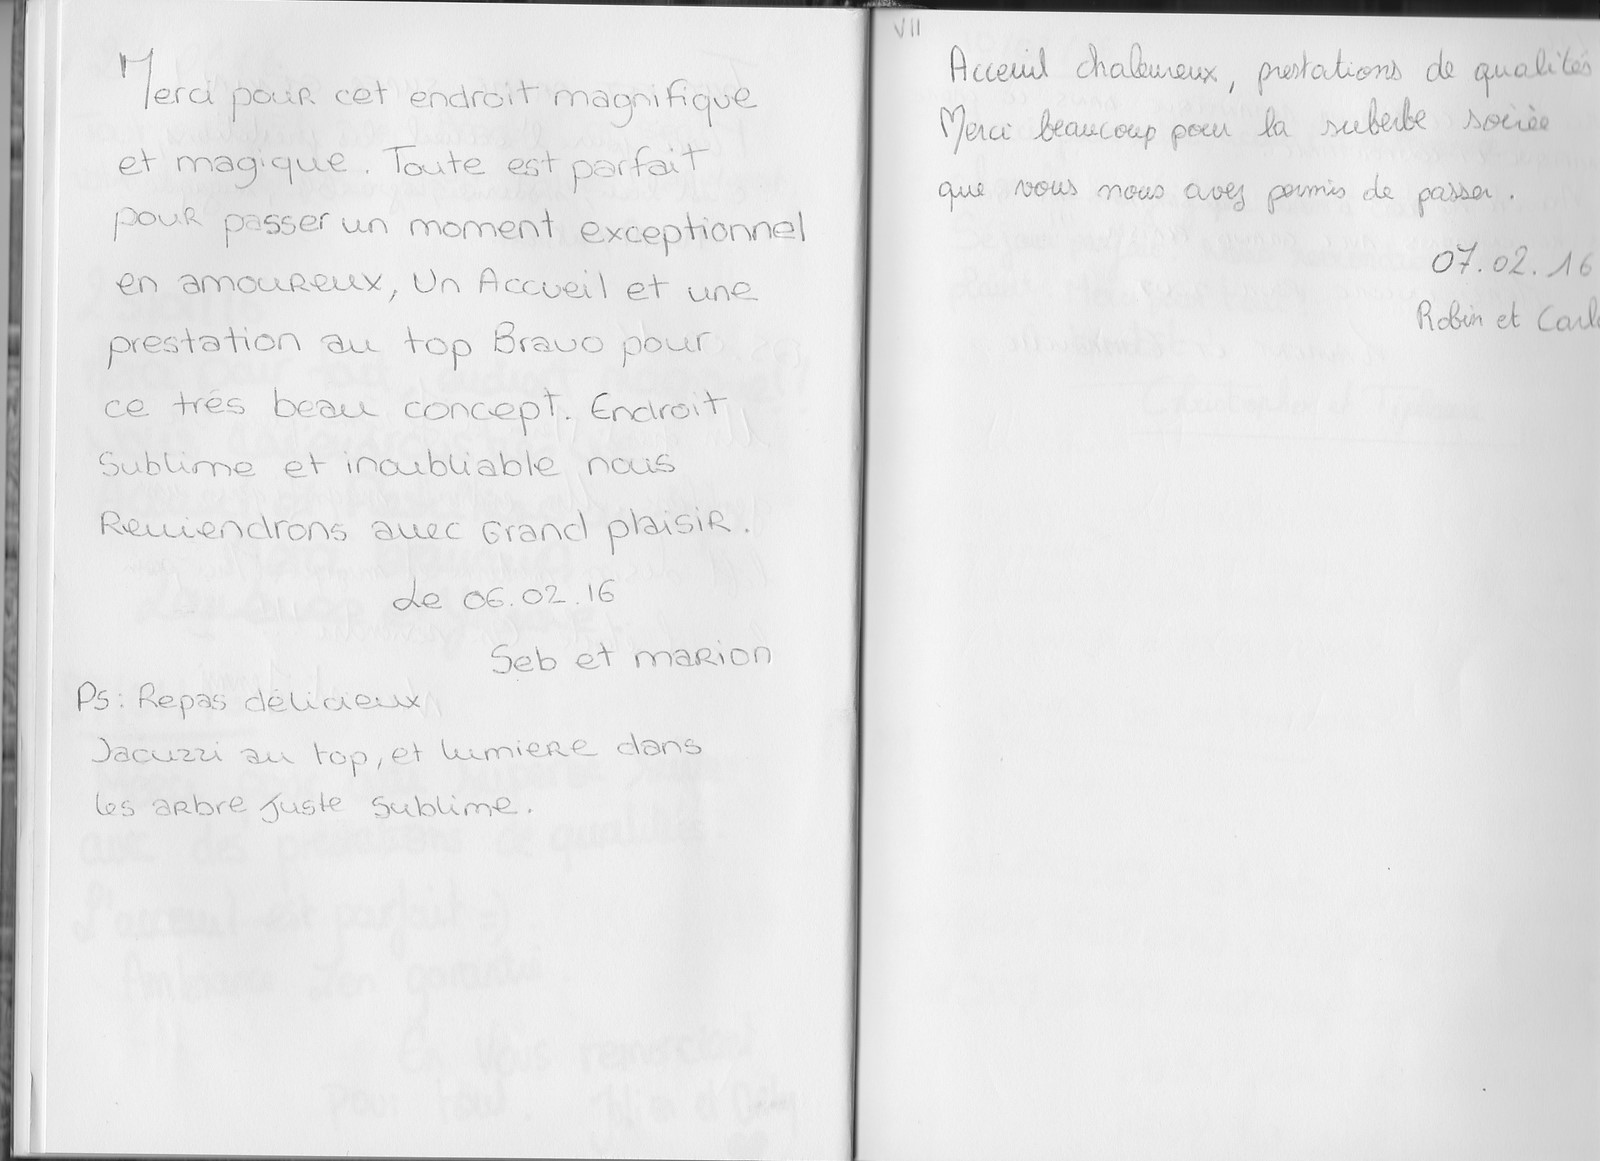 Merci pour cet endroit magnifique
et magique. Toute est parfait
pour passer un moment exceptionnel
en amoureux, Un Accueil et une
prestation au top Bravo pour
ce trés beau concept. Endroit
Sublime et inoubliable nous
Reviendrons avec Grand plaisir.
Le 06.02.16
Seb et marion
Ps: Repas délicieux
Jacuzzi au top, et lumiere dans
les arbre juste Sublime.
VII
Acceuil chaleureux, prestations de qualités
Merci beaucoup pour la suberbe soirée
que vous nous avez permis de passer.
07.02.16
Robin et